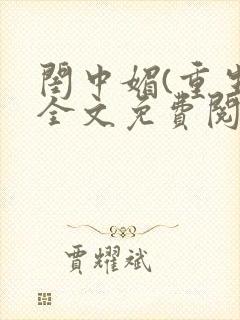 閨中媚(重生
全文免費閱
賈耀斌